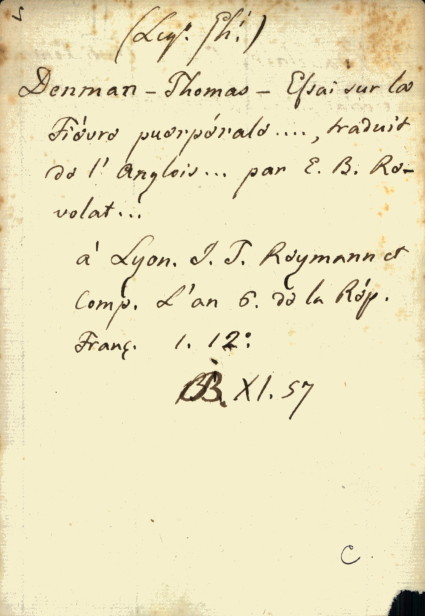 5
(Lugd. Ph.)
Denman - Thomas - Essai sur la
Fiévre puerpérale...., traduit
de l' Anglois... par E. B. Re-
volat...
à Lyon. J. T. Reymann et
Comp. L'an 6. de la Rép.
Franç. 1. 12º
B. XI. 57
C.